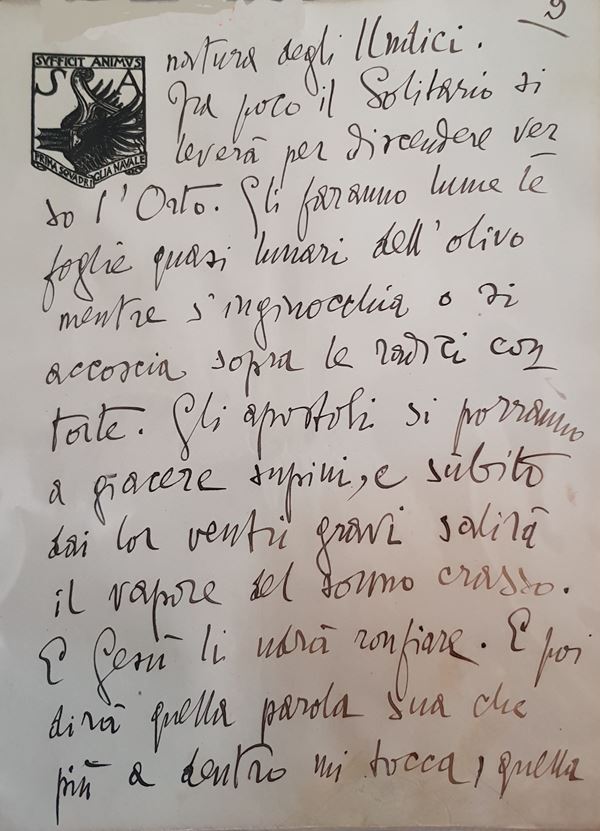 9
SVFFICIT ANIMVS
S A
PRIMA SQVADRIGLIA NAVALE
degli Undici.
Fra poco il Solitario si
leverà per discendere ver
so l'Orto. Gli faranno lume le
foglie quasi lunari dell'olivo
mentre s'inginocchia o si
accoscia sopra le radici con
torte. Gli apostoli si porranno
a giacere supini, e sùbito
dai lor ventri gravi salirà
il vapore del sonno crasso.
E Gesù li udrà ronfiare. E poi
dirà quella parola sua che
più a dentro mi tocca, quella